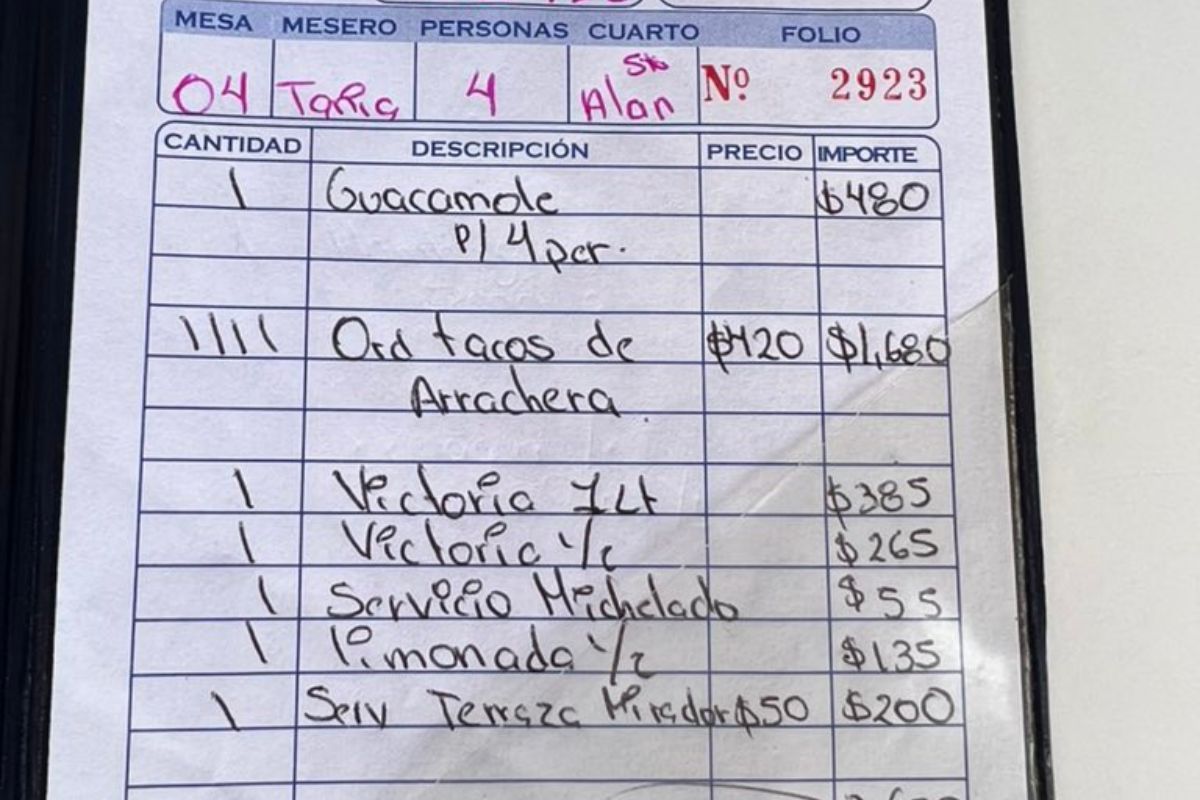 MESA MESERO PERSONAS CUARTO FOLIO
04 Tania 4 Alan Nº 2923
CANTIDAD DESCRIPCIÓN PRECIO IMPORTE
1 Guacamole $480
P/ 4 per.
1111 Ord tacos de $420 $1,680
Arrachera
1 Victoria 1Lt $385
1 Victoria 1/2 $265
1 Servicio Michelado $55
1 limonada 1/2 $135
1 Serv Terraza Mirador $50 $200